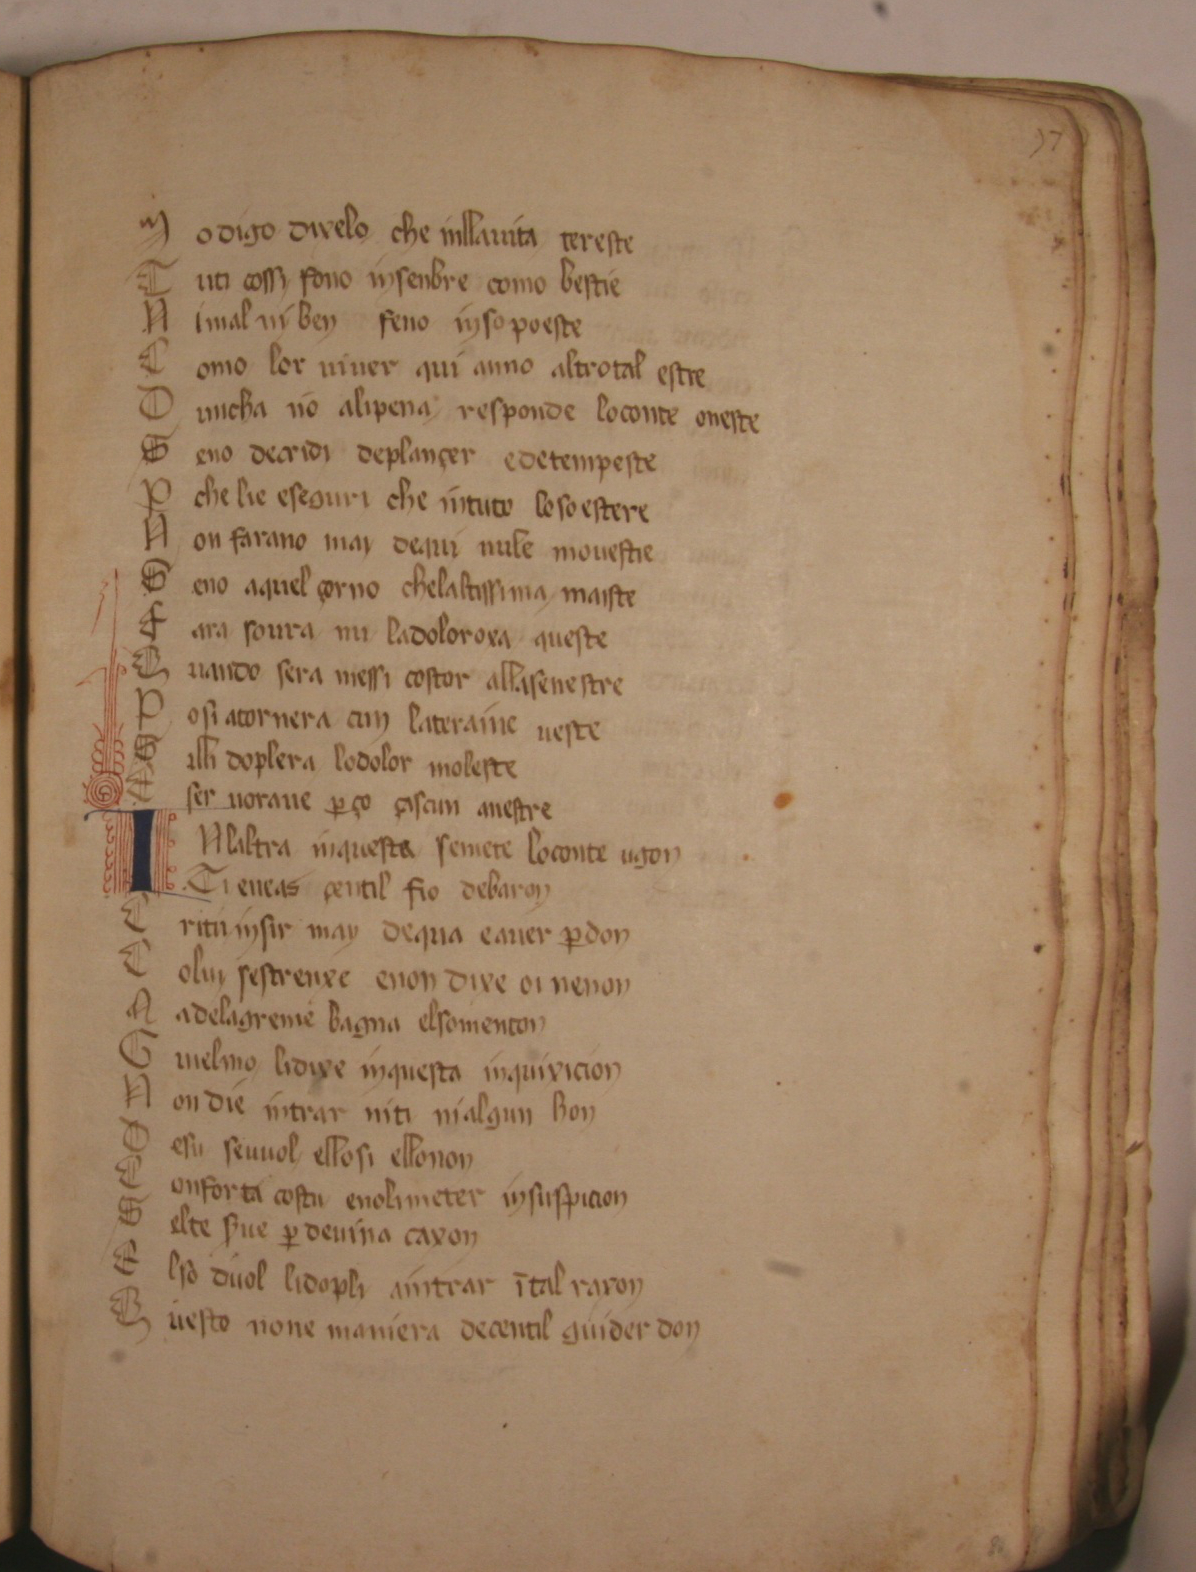 37
Mo digo dixelo che inllauita tereste
Tuti cossi sono insenbre como bestie
Nimal ni ben seno inso poeste
Como lor uiuer qui anno altrotal estre
Duncha no alipena responde loconte oneste
Seno decridi deplançer edetempeste
Pche lie eseguri che intuto loso estere
Non farano may dequi nulle moueste
Seno aquel çorno chelaltissima maiste
Fara soura nui ladoloroxa queste
Quando sera messi costor allasenestre
Posi atornera cun lateraine ueste
Silli doplera lodolor moleste
Eser uoraue pço çascun anestre
INlaltra inquesta semete loconte ugon
Ti eneas çentil fio debaron
Critu insir may dequa eauer pdon
Colui sestrenxe enon dixe oi nenon
Adelagreme bagna elsomenton
Guielmo lidixe inquesta inquixicion
Non die intrar niti nialgun hon
Desu seuuol ellosi ellonon
Conforta costu enolimeter insuspicion
Selte sue p deuina caxon
Elso duol lidopli aintrar ital raxon
Questo none maniera decentil guider don